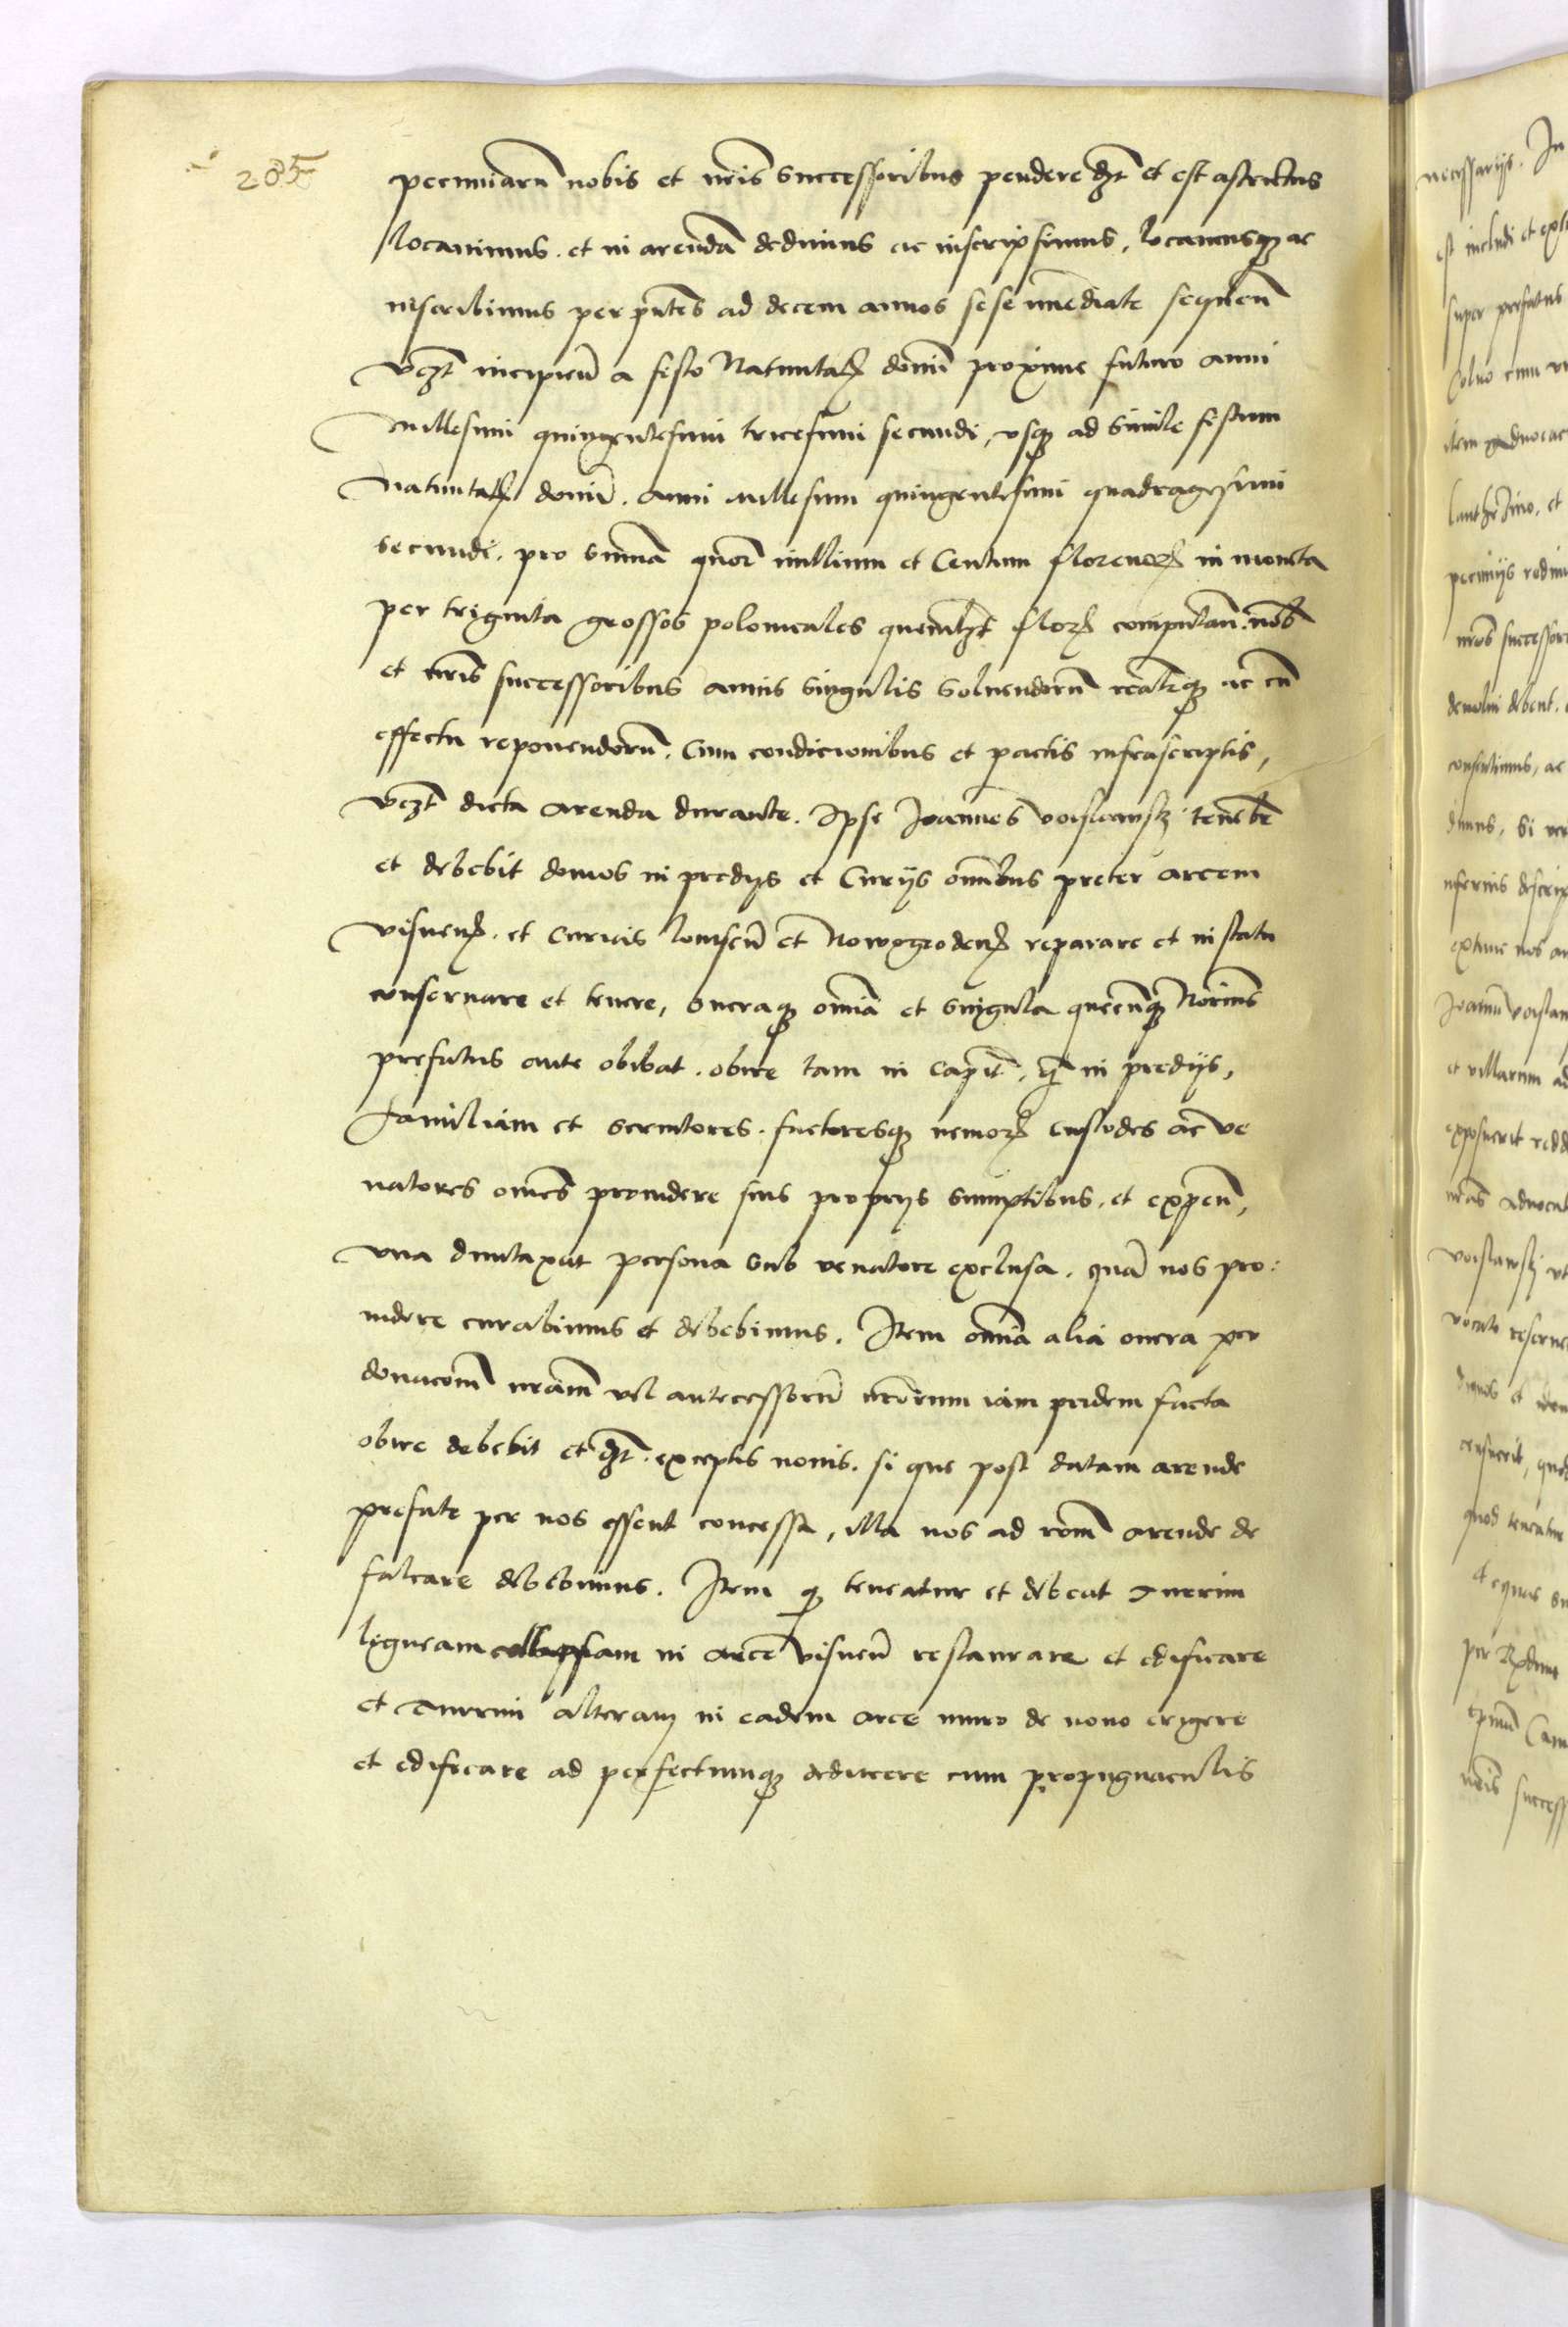 205
pecuniarū nobis et nr̄is successoribus pendere dꝫt et est astrictus
locauimus. et in arendā dedimus ac inscripsimus, locamusqꝫ ac
inscribimus per p̄ntes ad decem annos sese im̄ediate sequen̄
vcꝫt incipien̄ a festo Natiuitatꝭ domī proxime futuro anni
millesimi quingentesimi tricesimi secundi, vsqꝫ ad simile festum
natiuitatꝭ domī. anni millesimi quingentesimi quadragesimi
secundi. pro summā quor̄ millium et Centum florenorꝝ in moneta
per triginta grossos polonicales quemlꝫt florꝝ computan̄. nob̄
et nr̄is successoribus annis singulis soluendorū realiterqꝫ ac cū
effectu reponendorū. Cum condicionibus et pactis infrascriptis,
vcꝫt dicta arenda durante. Ipse Joannes voislawskj teneb̄t
et debebit domos in predijs et Curijs om̄ibus preter arcem
visnenꝭ. et curias lomsen̄ et Nowogrodenꝭ reparare et in statu
conseruare et tenere, oneraqꝫ om̄ia et singula quecūqꝫ Norimb
prefatus ante obibat. obire tam in capit̄. qꝫ in predijs,
familiam et seruitores. factoresqꝫ nemorꝝ custodes ac ve
natores om̄es prouidere suis proprijs sumptibus. et expen̄,
vna duntaxat persona sub venatore exclusa. quā nos pro:
uidere curabimus et debebimus. Item om̄ia alia onera per
donacōm nr̄am vel antecessorū nr̄orum iam pridem facta
obire debebit et dꝫt. exceptis nouis. si que post datam arende
prefate per nos essent concessa, illa nos ad rōm arende de
falcare debebimus. Item qꝫ teneatur et debeat Turrim
ligneam collapsam in arce visnen̄ restaurare et edificare
et Turrim alteram in eadem arce muro de nouo erigere
et edificare ad perfectumqꝫ deducere cum propugnaculis
necessarijs. In
est includi et
super prefatus
item aduocac
nr̄os successor
demolui debent.
consentimus, ac
dimus, si
inferius descrip
Joannē voislaw
et villarum ad
exposuerit redd
nr̄as aduocat
voislawskj vt
quod teneatur
nr̄is success